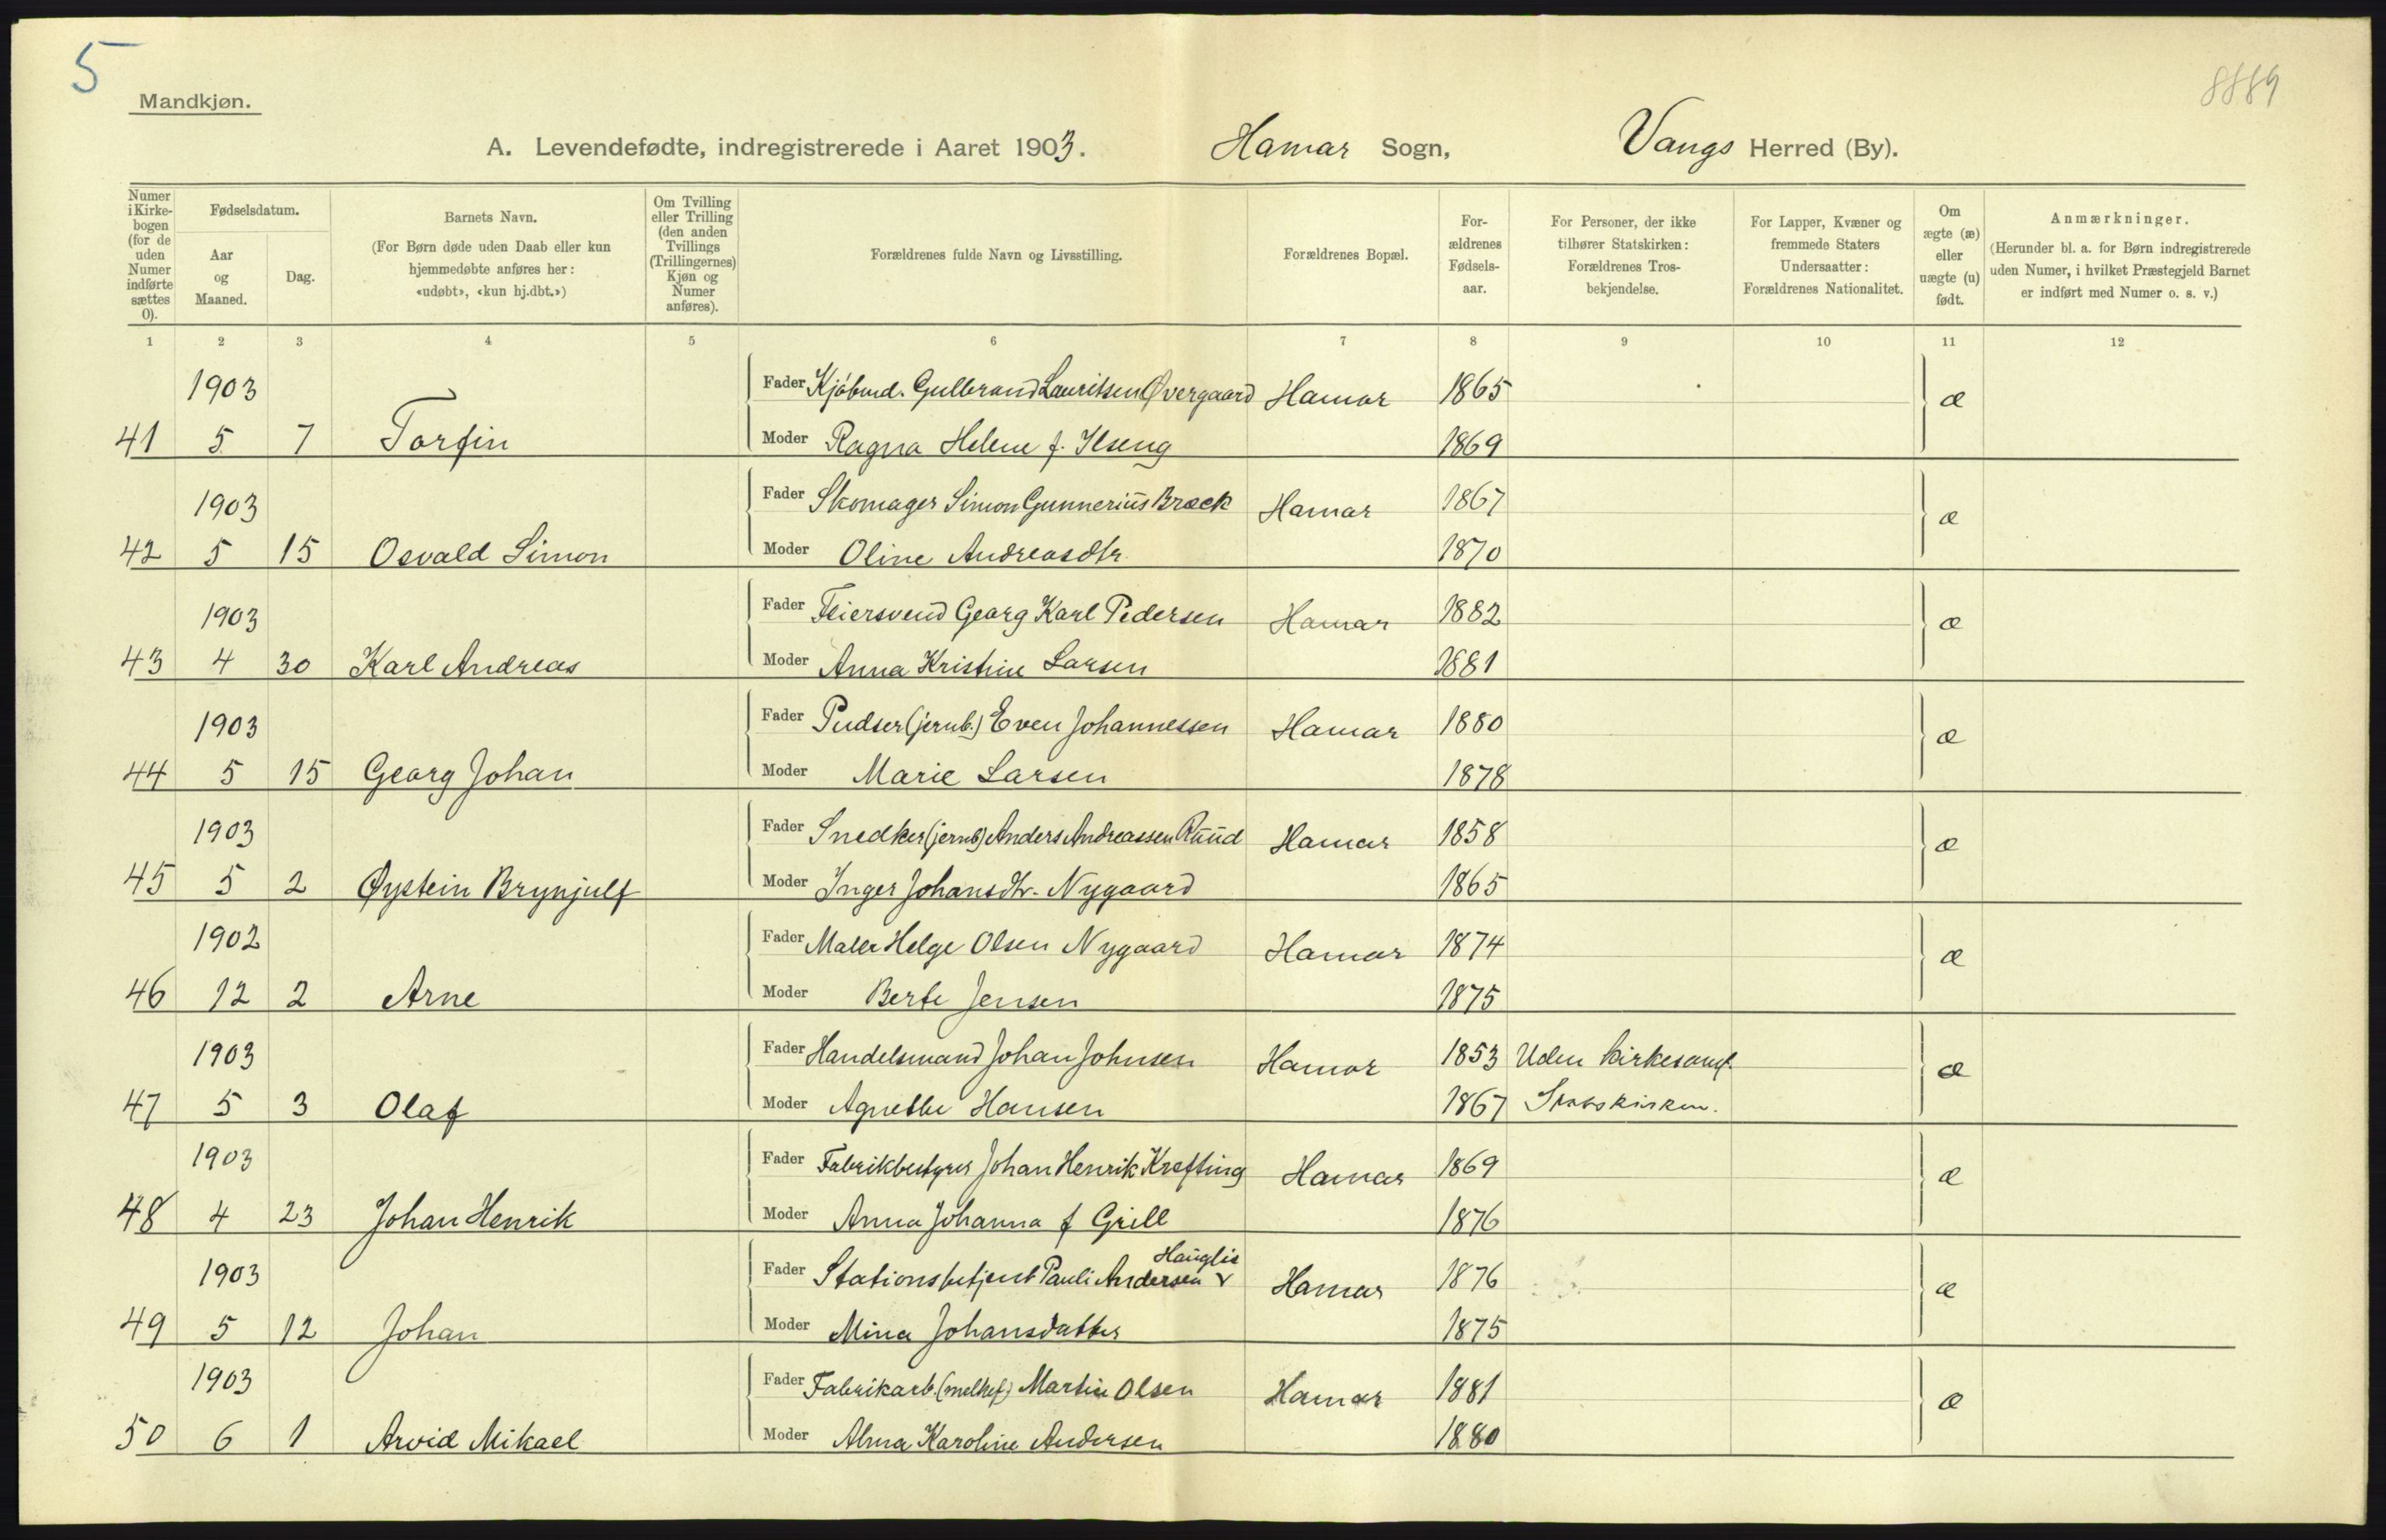 5
8889
Mandkjøn.
A. Levendefødte, indregistrerede i Aaret 1903. Hamar Sogn, Vangs Herred (By).
Numer i Kirkebogen (for de uden Numer indførte sættes 0).
Fødselsdatum.
Aar og Maaned.
Dag.
Barnets Navn.
(For Børn døde uden Daab eller kun hjemmedøbte anføres her: «udøbt», «kun hj.dbt.»)
Om Tvilling eller Trilling (den anden Tvillings (Trillingernes) Kjøn og Numer anføres).
Forældrenes fulde Navn og Livsstilling.
Forældrenes Bopæl.
Forældrenes Fødselsaar.
For Personer, der ikke tilhører Statskirken: Forældrenes Trosbekjendelse.
For Lapper, Kvæner og fremmede Staters Undersaatter: Forældrenes Nationalitet.
Om ægte (æ) eller uægte (u) født.
Anmærkninger.
(Herunder bl. a. for Børn indregistrerede uden Numer, i hvilket Præstegjeld Barnet er indført med Numer o. s. v.)
1 2 3 4 5 6 7 8 9 10 11 12
1903 Fader Kjøbmd. Gulbrand Lauritsen Øvergaard Hamar 1865 æ
41 5 7 Torfin Moder Ragna Helene f. Ilseng 1869
1903 Fader Skomager Simon Gunnerius Bræck Hamar 1867 æ
42 5 15 Osvald Simon Moder Oline Andreasdtr. 1870
1903 Fader Feiersvend Georg Karl Pedersen Hamar 1882 æ
43 4 30 Karl Andreas Moder Anna Kristine Larsen 1881
1903 Fader Pudser (jernb.) Even Johannessen Hamar 1880 æ
44 5 15 Georg Johan Moder Marie Larsen 1878
1903 Fader Snedker (jernb) Anders Andreassen Ruud Hamar 1858 æ
45 5 2 Øystein Brynjulf Moder Inger Johansdtr. Nygaard 1865
1902 Fader Maler Helge Olsen Nygaard Hamar 1874 æ
46 12 2 Arne Moder Berte Jensen 1875
1903 Fader Handelsmand Johan Johnsen Hamar 1853 Uden kirkesamf. æ
47 5 3 Olaf Moder Agnethe Hansen 1867 Statskirken.
1903 Fader Fabrikbestyrer Johan Henrik Krefting Hamar 1869 æ
48 4 23 Johan Henrik Moder Anna Johanna f Grill 1876
Hauglie
1903 Fader Stationsbetjent Pauli Andersen v Hamar 1876 æ
49 5 12 Johan Moder Mina Johansdatter 1875
1903 Fader Fabrikarb. (melkef) Martin Olsen Hamar 1881 æ
50 6 1 Arvid Mikael Moder Alma Karoline Andersen 1880